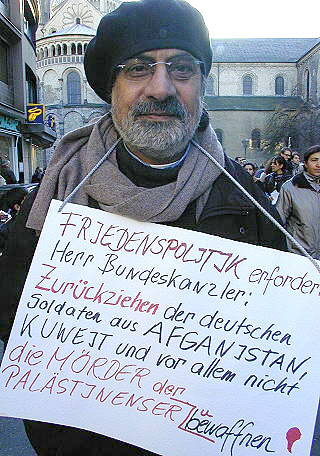 FRIEDENSPOLITIK erfordert
Herr Bundeskanzler:
Zurückziehen der deutschen
Soldaten aus AFGANISTAN,
KUWEIT und vor allem nicht
die MÖRDER der
PALÄSTINENSER zu bewaffnen !